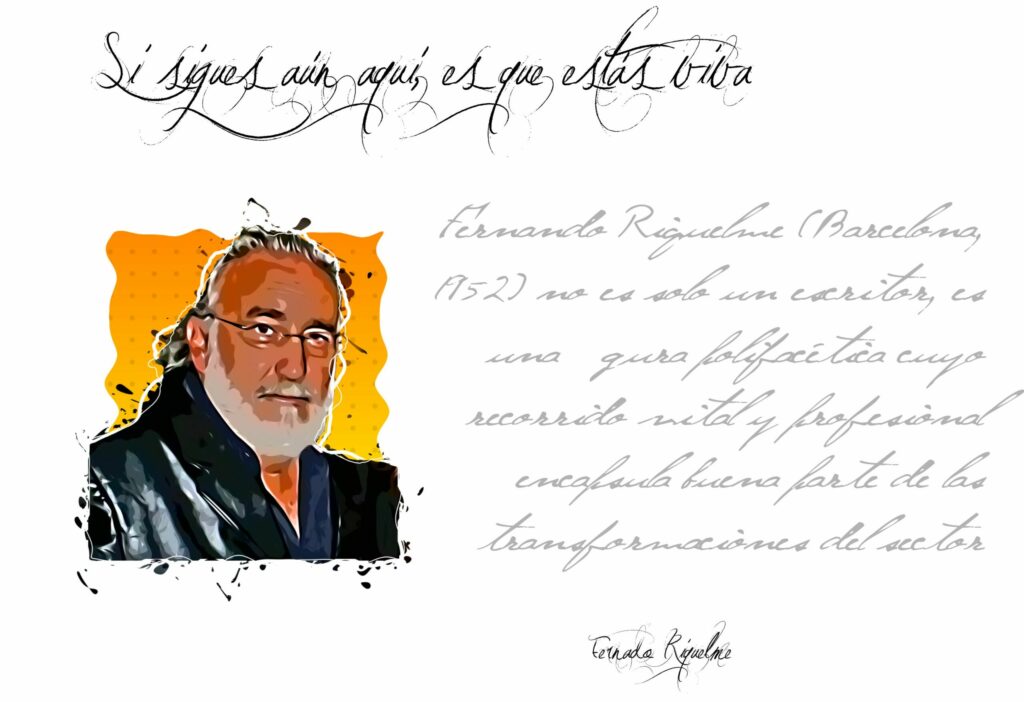 Si sigues aún aquí, es que estás viva
Fernando Riquelme (Barcelona,
1952) no es solo un escritor, es
una gura polifacética cuyo
recorrido vital y profesional
encapsula buena parte de las
transformaciones del sector
Fernado Riquelme